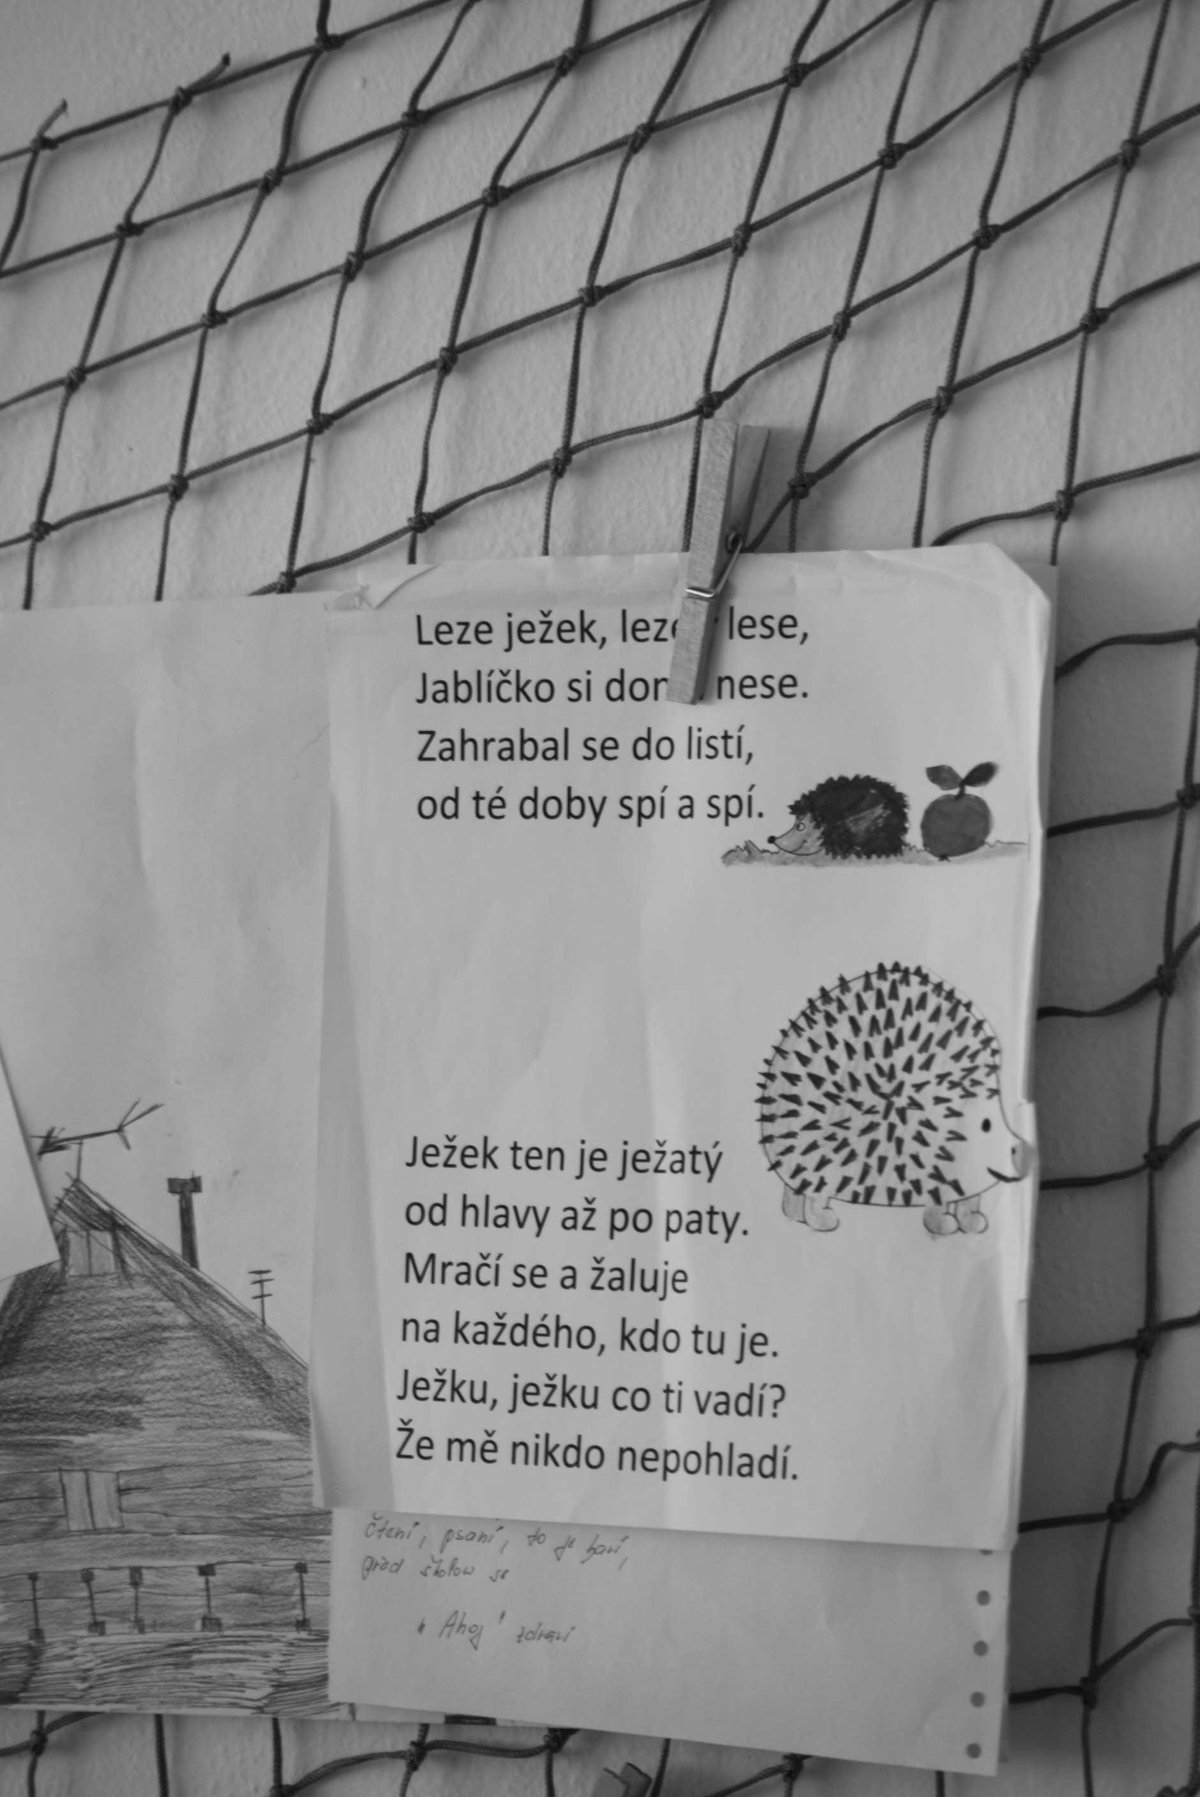 Leze ježek, leze lese,
Jablíčko si nese.
Zahrabal se do listí,
od té doby spí a spí.
Ježek ten je ježatý
od hlavy až po paty.
Mračí se a žaluje
na každého, kdo tu je.
Ježku, ježku co ti vadí?
Že mě nikdo nepohladí.
čtení, psaní, to je baví,
před školou se
"Ahoj" zdraví